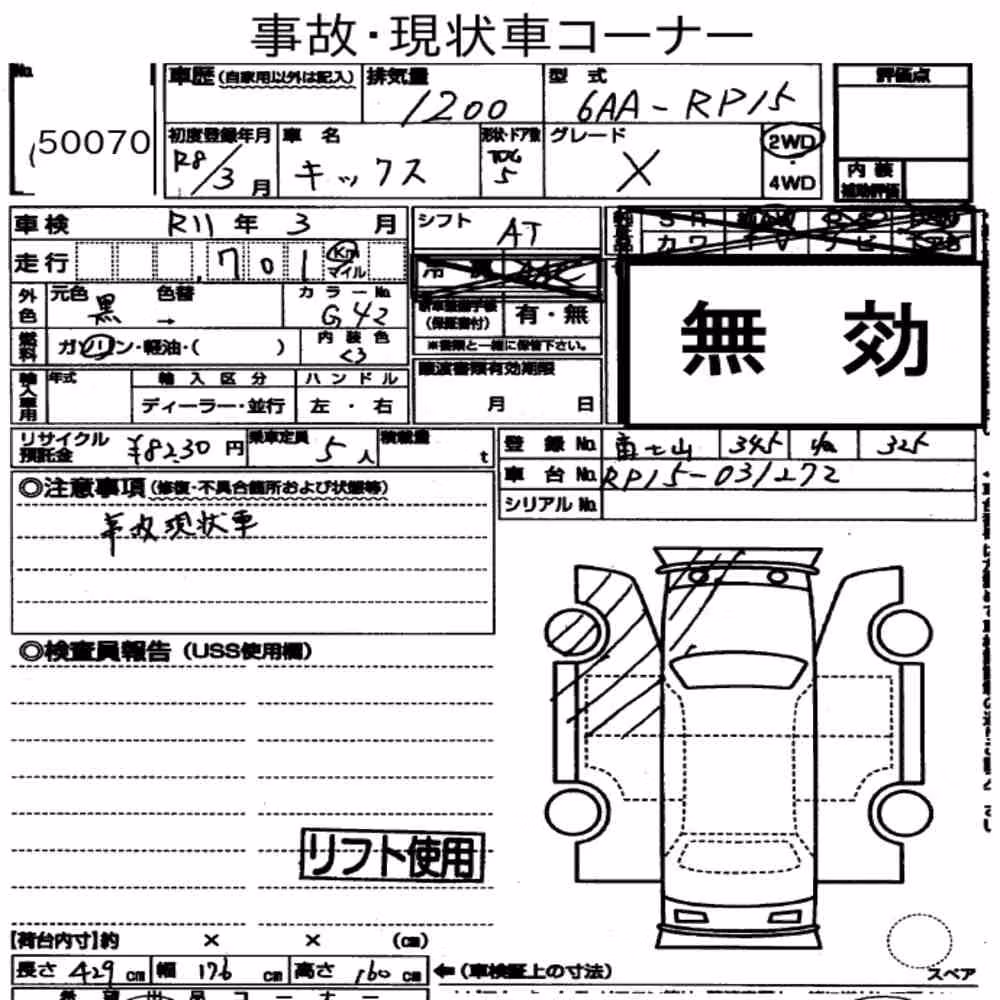 事故・現状車コーナー
No. 50070
車歴(自家用以外は記入)
排気量 1200
型式 6AA-RP15
評価点
初度登録年月 R8/3月
車名 キックス
形状・ドア数 5
グレード X
2WD・4WD
内装補助評価
車検 R11年3月
シフト AT
走行 701 Km マイル
外色 元色 黒 色替 →
カラーNo. G42
(保証書付) 有・無
※書類と一緒に保管下さい。
無効
燃料 ガソリン・軽油・( )
内装色
譲渡書類有効期限 月 日
輸入車用 年式
輸入区分 ディーラー・並行
ハンドル 左・右
リサイクル預託金 ¥8230円
乗車定員 5人
積載量 t
登録No. 富士山 345 325
車台No. RP15-031272
シリアルNo.
◎注意事項(修復・不具合箇所および状態等)
事故現状車
◎検査員報告(USS使用欄)
リフト使用
【荷台内寸】約 × × (cm)
長さ 429 cm 幅 176 cm 高さ 160 cm
←(車検証上の寸法)
スペア